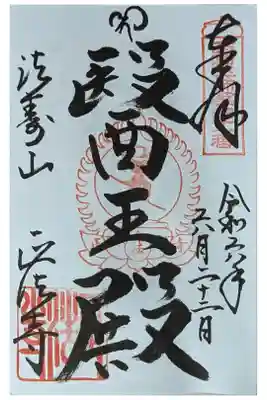 奉拝
令和六年
六月二十二日
醫王殿
法壽山
正法寺